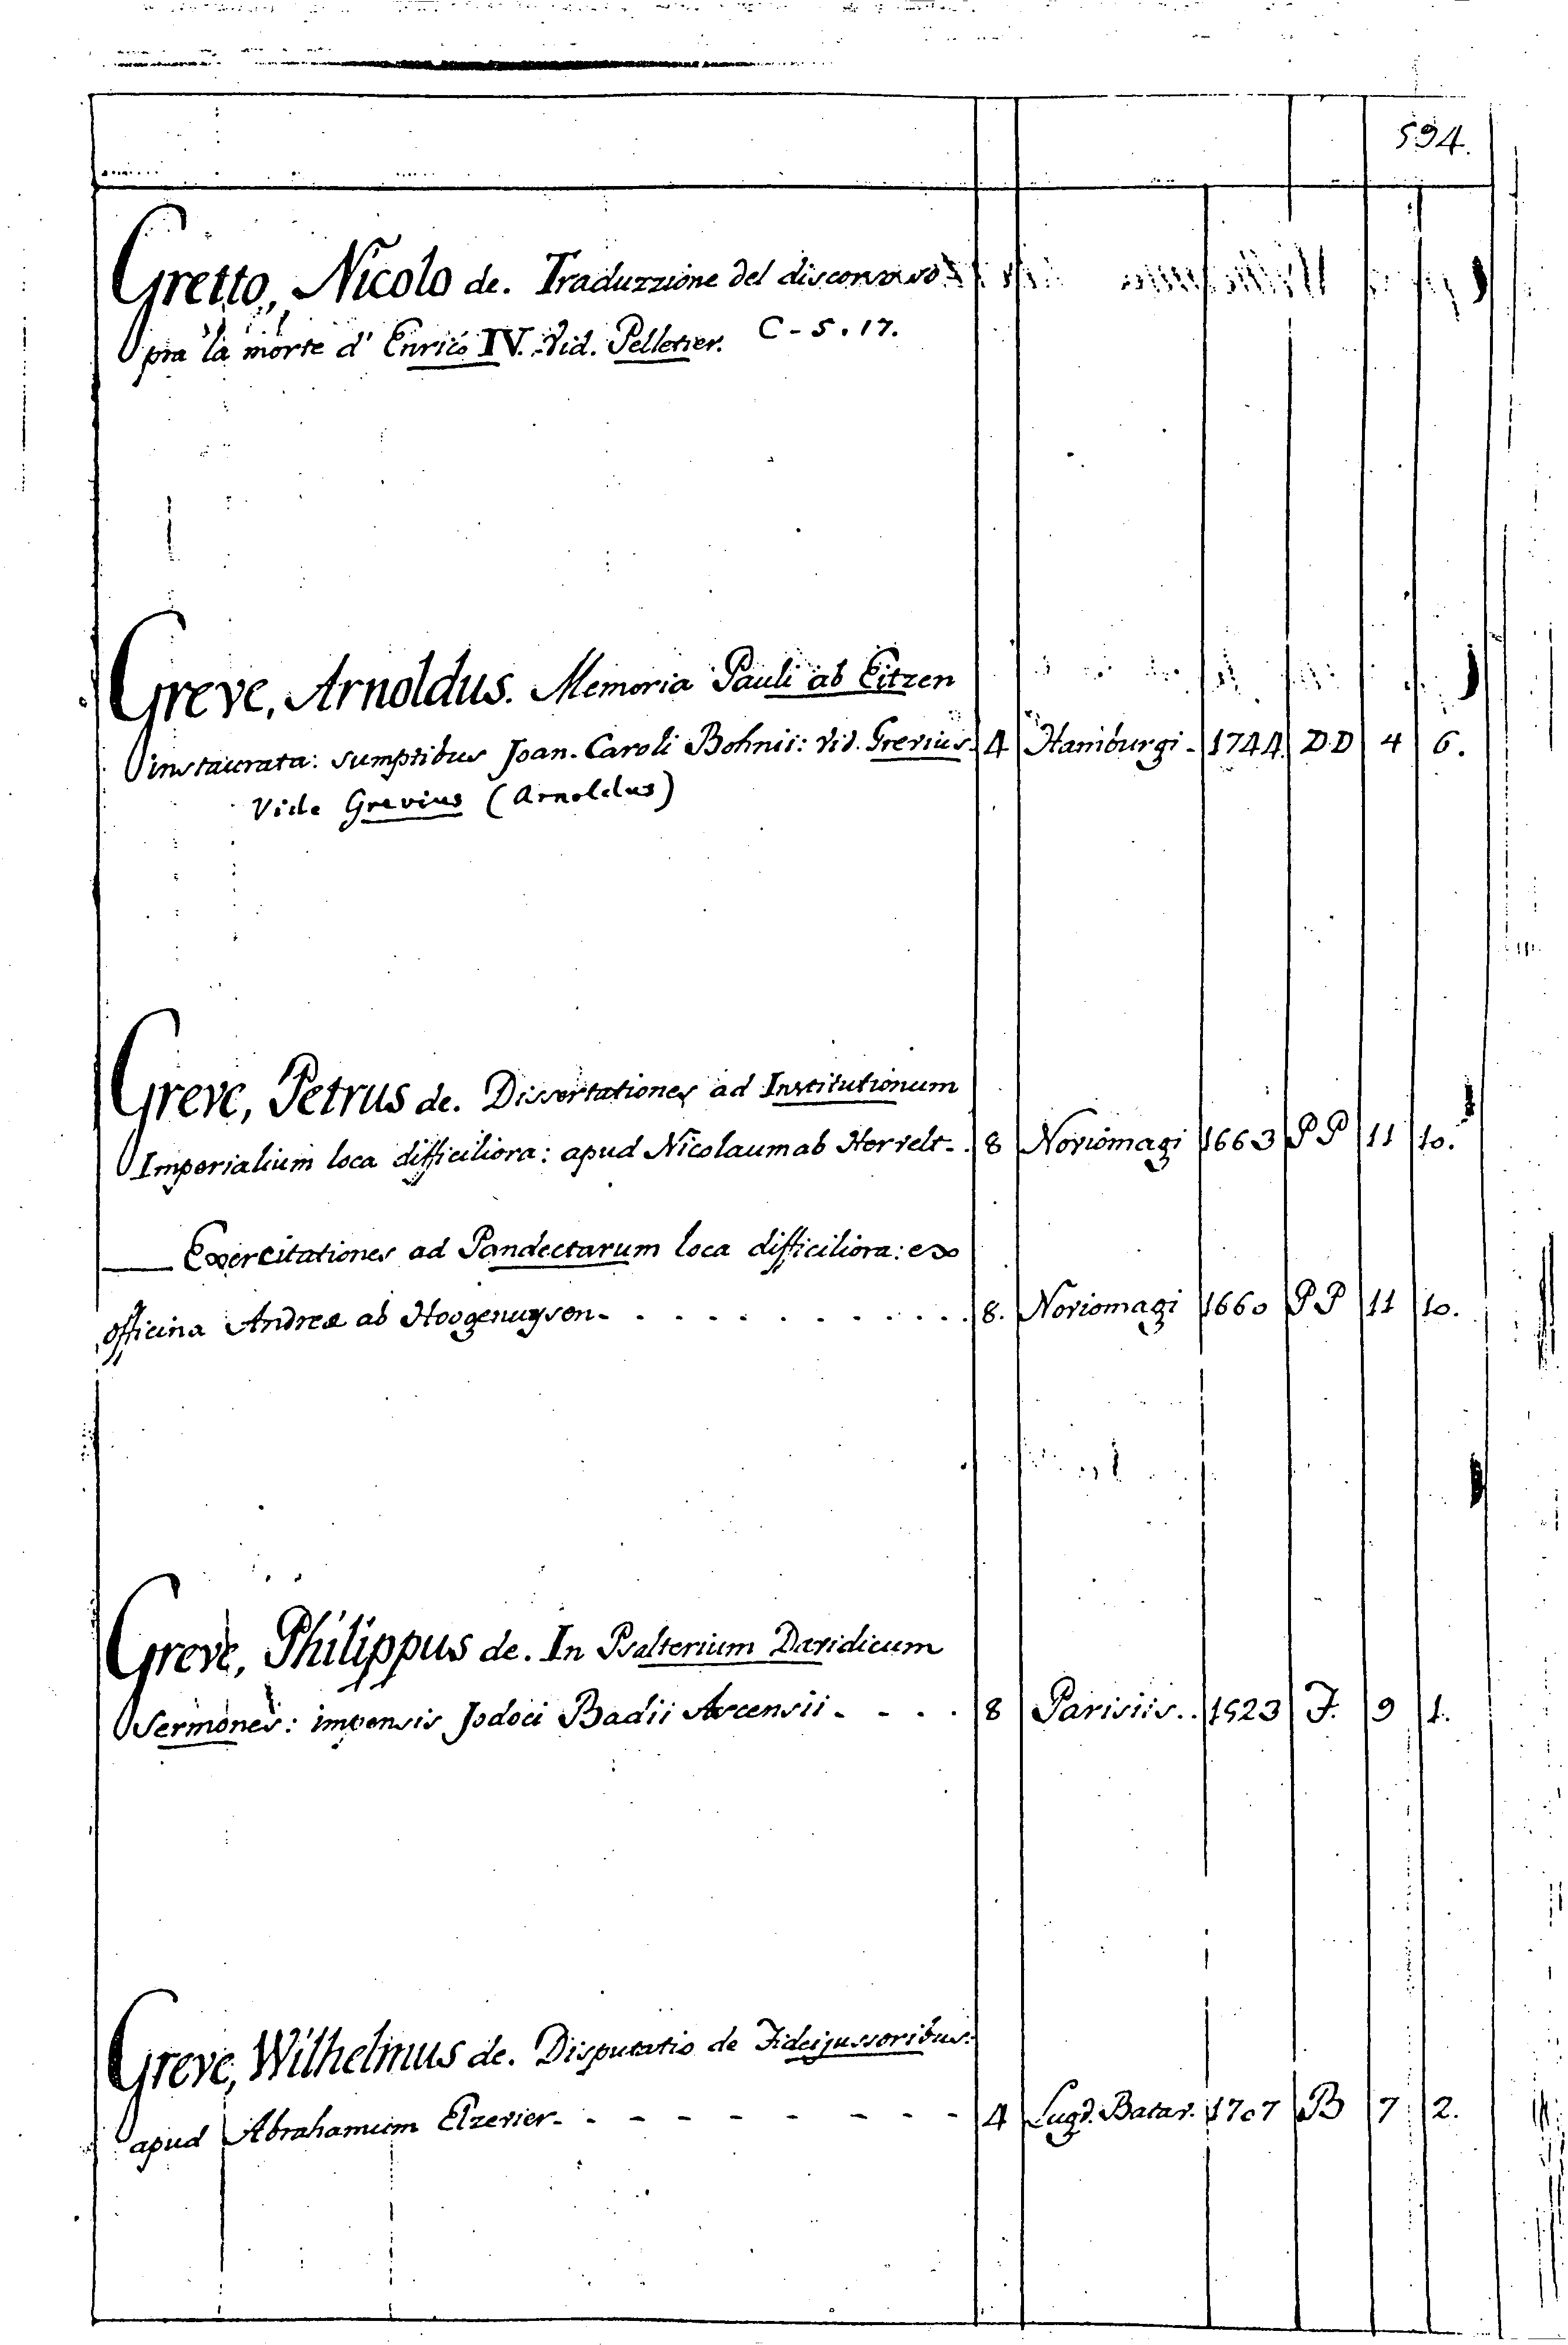 594.
Gretto, Nicolo de. Traduzzione del discorso so
pra la morte d' Enrico IV. Vid. Pelletier. C - 5. 17.
Greve, Arnoldus. Memoria Pauli ab Eitzen
instaurata: sumptibus Joan. Caroli Bohnii: vid. Grevius. 4 Hamburgi - 1744. DD 4 6.
Vide Grevius (Arnoldus)
Greve, Petrus de. Dissertationes ad Institutionum
Imperialium loca difficiliora: apud Nicolaum ab Hervelt - . 8 Noviomagi 1663 PP 11 10.
—— Exercitationes ad Pandectarum loca difficiliora: ex
officina Andreæ ab Hoogenuysen - . . . . . . . . . . 8. Noviomagi 1660 PP 11 10.
Greve, Philippus de. In Psalterium Davidicum
Sermones: impensis Jodoci Badii Ascensii - . . . . 8 Parisiis. . 1523 J. 9 1.
Greve, Wilhelmus de. Disputatio de Fideijussoribus:
apud Abrahamum Elzevier - - - - - - - - - 4 Lugd. Batav. 1707 B 7 2.